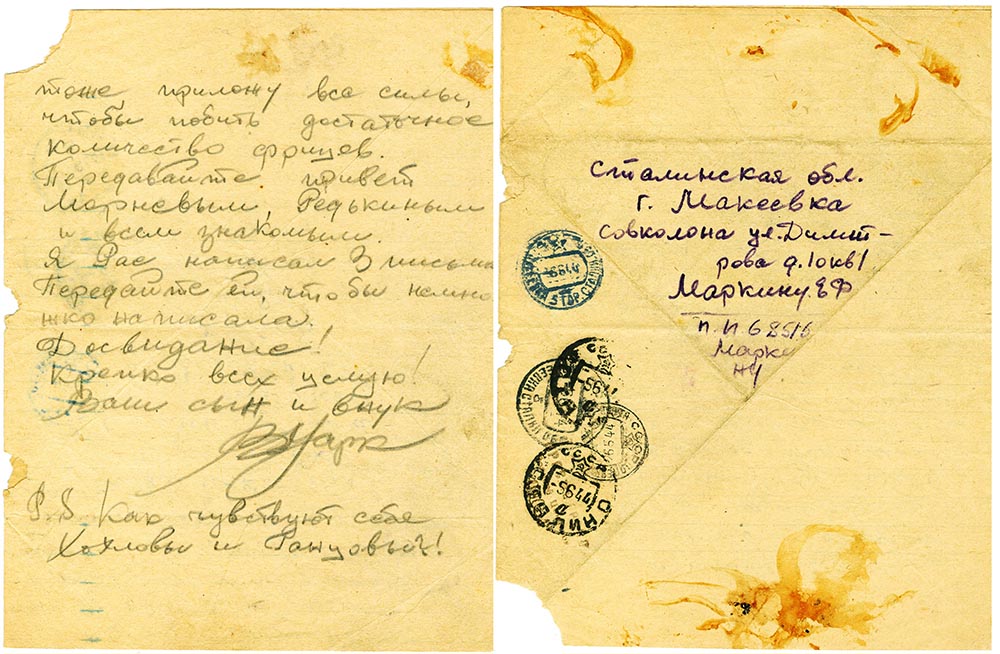 тоже приложу все силы,
чтобы побить достаточное
количество фрицев.
Передавайте привет
Марневым, Редькиным
и всем знакомым.
Я Рае написал 3 письма
Передайте ей, чтобы немно
жко написала.
Досвидание!
Крепко всех целую!
Ваш сын и внук
ВМарк
P.S Как чувствуют себя
Хохловы и Ганцовы?!
Сталинская обл.
г. Макеевка
Совколона ул. Димит-
рова д. 10 кв 1
Маркину ЕФ
п. п 68516
Марки
ну